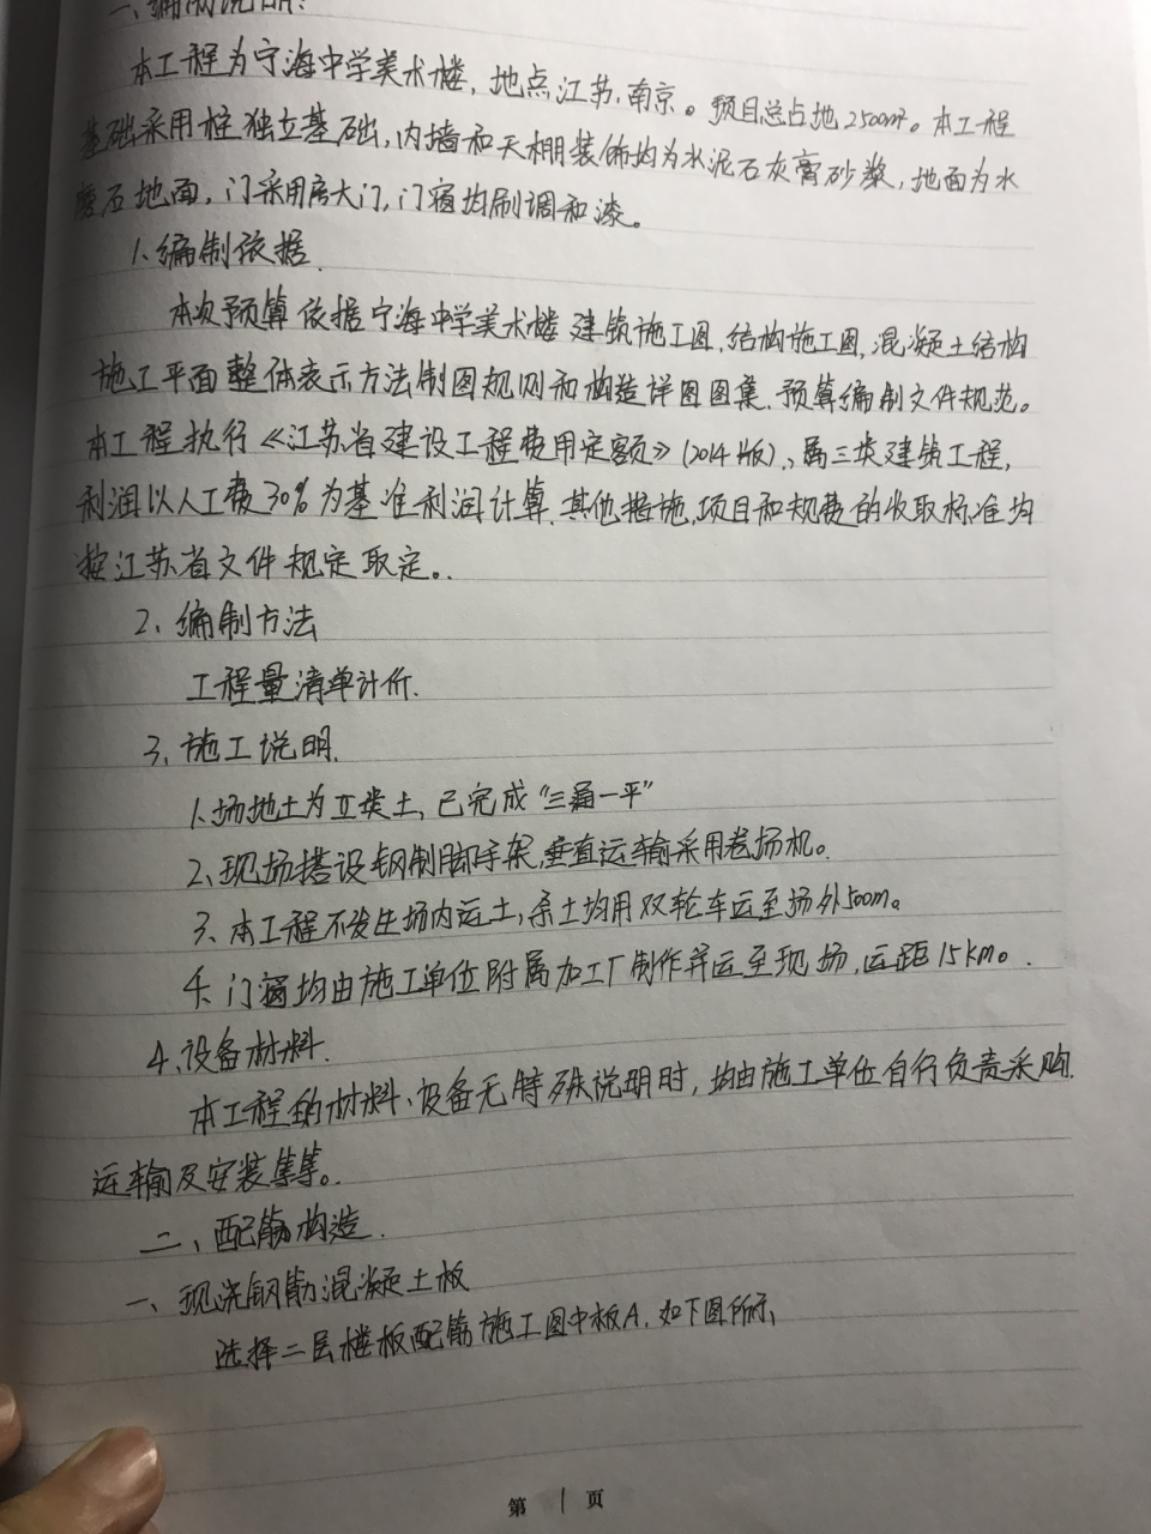 一、编制说明:
本工程为宁海中学美术楼,地点江苏.南京。项目总占地2500m²。本工程
基础采用柱独立基础,内墙和天棚装饰均为水泥石灰膏砂浆,地面为水
磨石地面,门采用房大门,门窗均刷调和漆。
1、编制依据.
本次预算依据宁海中学美术楼建筑施工图.结构施工图,混凝土结构
施工平面整体表示方法制图规则和构造详图图集.预算编制文件规范。
本工程执行《江苏省建设工程费用定额》(2014版).,属三类建筑工程,
利润以人工费30%为基准利润计算.其他措施,项目和规费的收取标准均
按江苏省文件规定取定。.
2、编制方法
工程量清单计价.
3、施工说明.
1、场地土为Ⅱ类土,已完成"三通一平"
2、现场搭设钢制脚手架,垂直运输采用卷扬机。
3、本工程不发生场内运土,余土均用双轮车运至场外500m。
4、门窗均由施工单位附属加工厂制作并运至现场,运距15km。.
4、设备材料.
本工程的材料、设备无特殊说明时,均由施工单位自行负责采购.
运输及安装等等。.
二、配筋构造.
一、现浇钢筋混凝土板
选择二层楼板配筋施工图中板A.如下图所示、
第 1 页